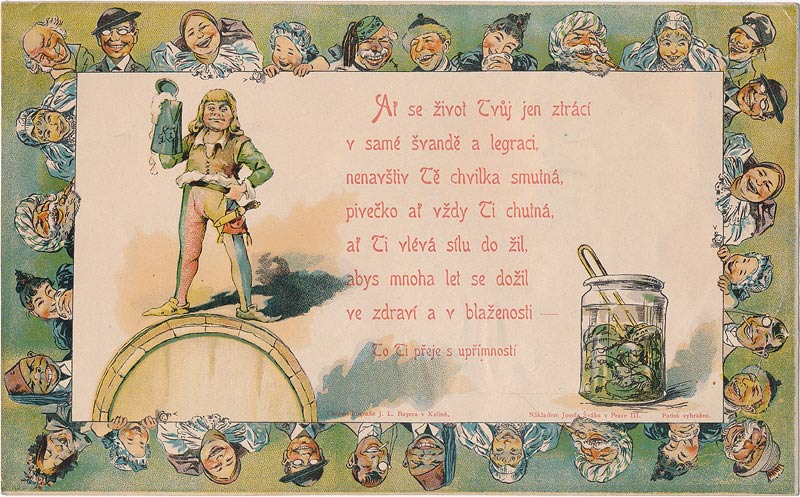 Ať se život Tvůj jen ztrácí
v samé švandě a legraci,
nenavštiv Tě chvilka smutná,
pivečko ať vždy Ti chutná,
ať Ti vlévá sílu do žil,
abys mnoha let se dožil
ve zdraví a v blaženosti —
To Ti přeje s upřímností
J. L. Bayera v Kolíně,
Nákladem Josefa Švába v Praze III.
Patisk vyhražen.